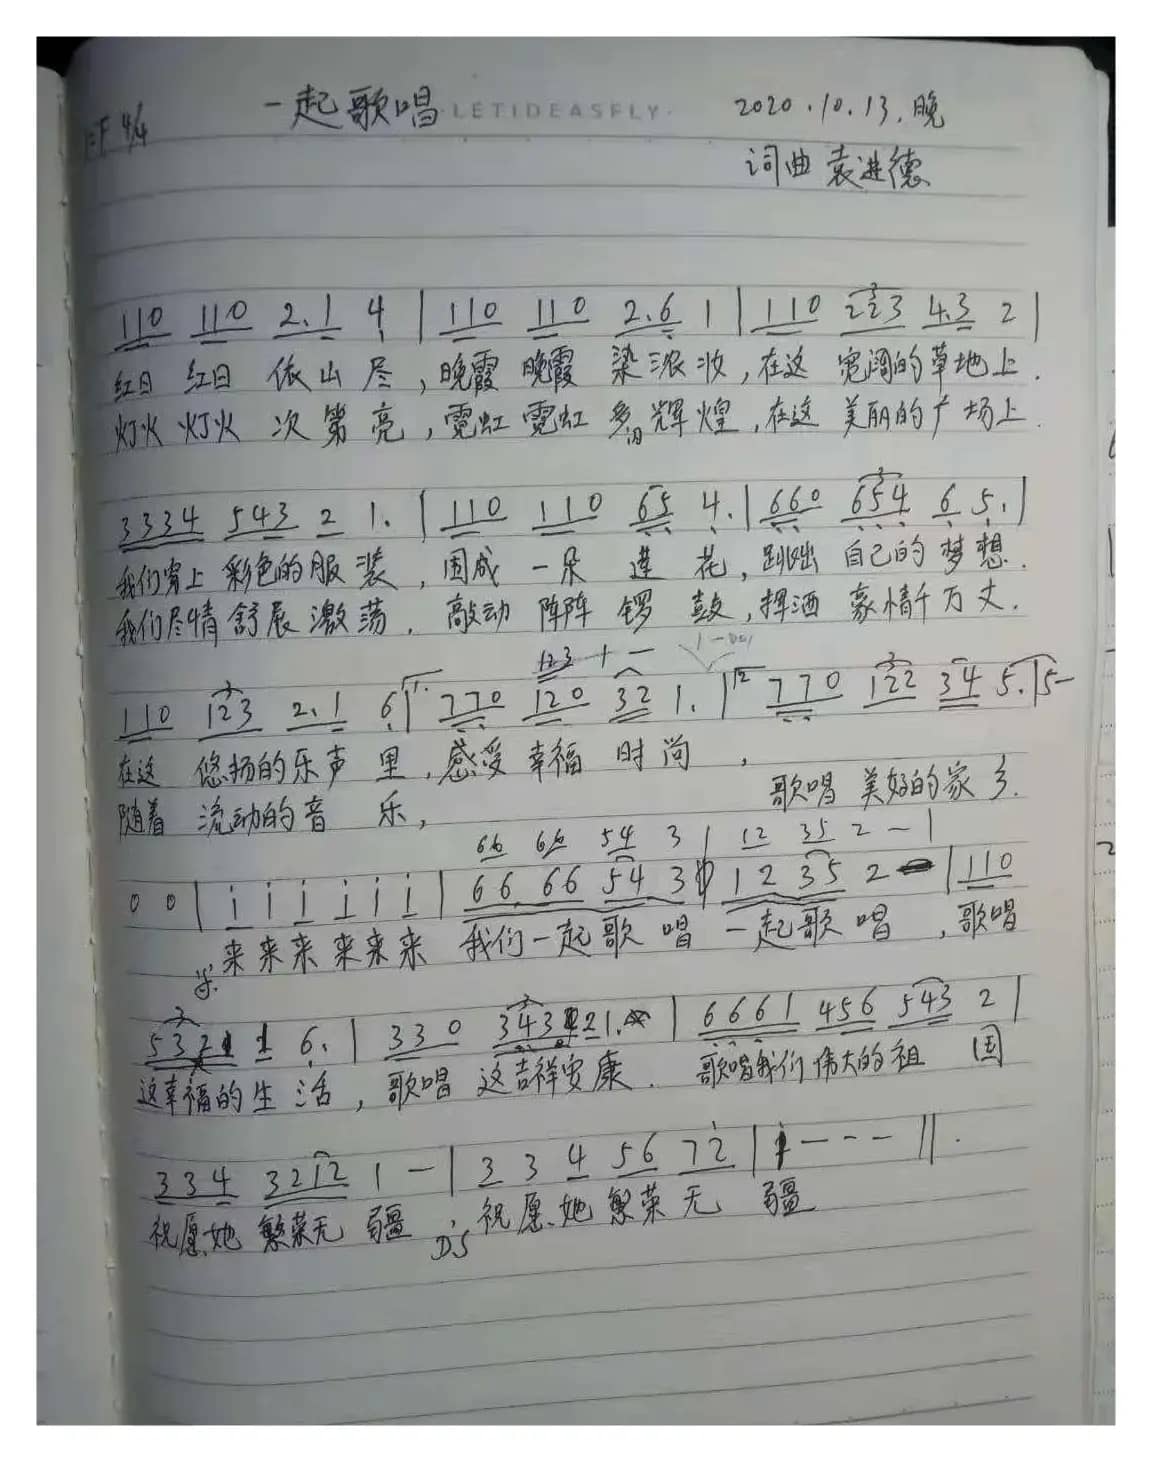 一起歌唱 ·LETIDEASFLY· 2020.10.13.晚
1=F 4/4
词曲 袁进德
110 110 2.1 4 | 110 110 2.6 1 | 110 223 4.3 2 |
红日 红日 依山尽,晚霞 晚霞 染浓妆,在这 宽阔的草地上.
灯火 灯火 次第亮,霓虹 霓虹 多辉煌,在这 美丽的广场上.
3334 543 2 1. | 110 110 65 4. | 660 654 6 5. |
我们穿上 彩色的服装,围成 一朵 莲花,跳出 自己的梦想.
我们尽情舒展激荡.敲动 阵阵 锣鼓,挥洒 豪情千万丈.
123 1 —
110 123 2.1 6 | 1. 770 120 32 1. | 2 770 122 34 5. | 5—
在这 悠扬的乐声里,感受 幸福 时尚,
随着 流动的音乐, 歌唱 美好的家乡.
66 66 54 3 | 12 35 2 — |
0 0 | i i i i i i | 66 66 54 3 | 12 35 2 | 110
来来来来来来 我们一起歌唱 一起歌唱,歌唱
532 1 6. | 330 343 21. | 6661 456 543 2 |
这幸福的生活,歌唱 这吉祥安康.歌唱我们伟大的祖国
334 3212 1 — | 3 3 4 56 72 | i — — — ‖.
祝愿她 繁荣无疆,祝愿她繁荣无疆
DS